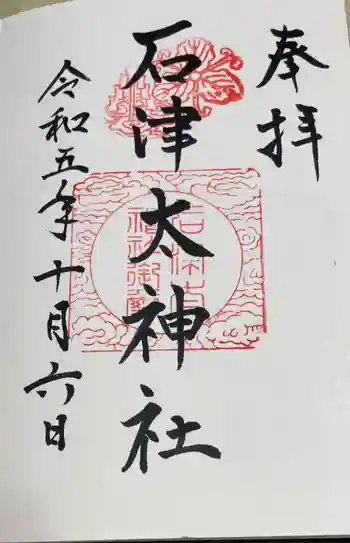 奉拝
石津太神社
令和五年十月六日